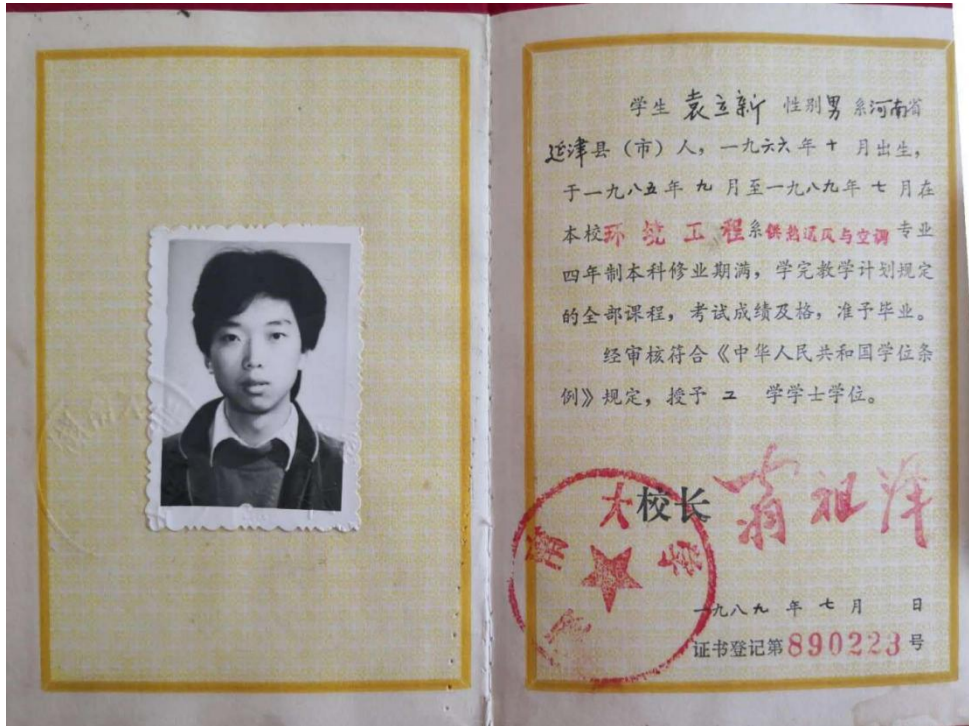 学生 袁立新 性别男 系河南省
延津县（市）人，一九六六年十月出生，
于一九八五年九月至一九八九年七月在
本校环境工程系供热通风与空调专业
四年制本科修业期满，学完教学计划规定
的全部课程，考试成绩及格，准予毕业。
经审核符合《中华人民共和国学位条
例》规定，授予 工 学学士学位。
校长 翁祖泽
湖南大学
一九八九年七月 日
证书登记第890223号